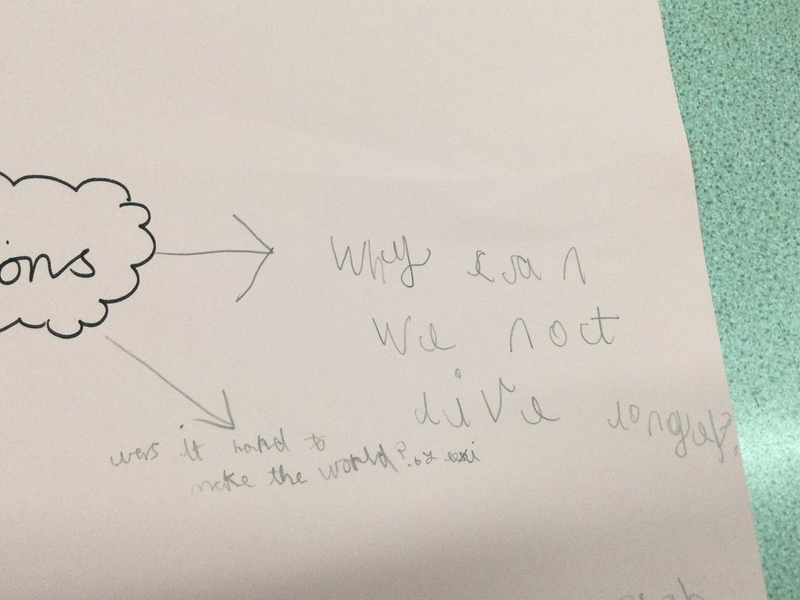 ions
why can
we not
live longer?
was it hard to
make the world?